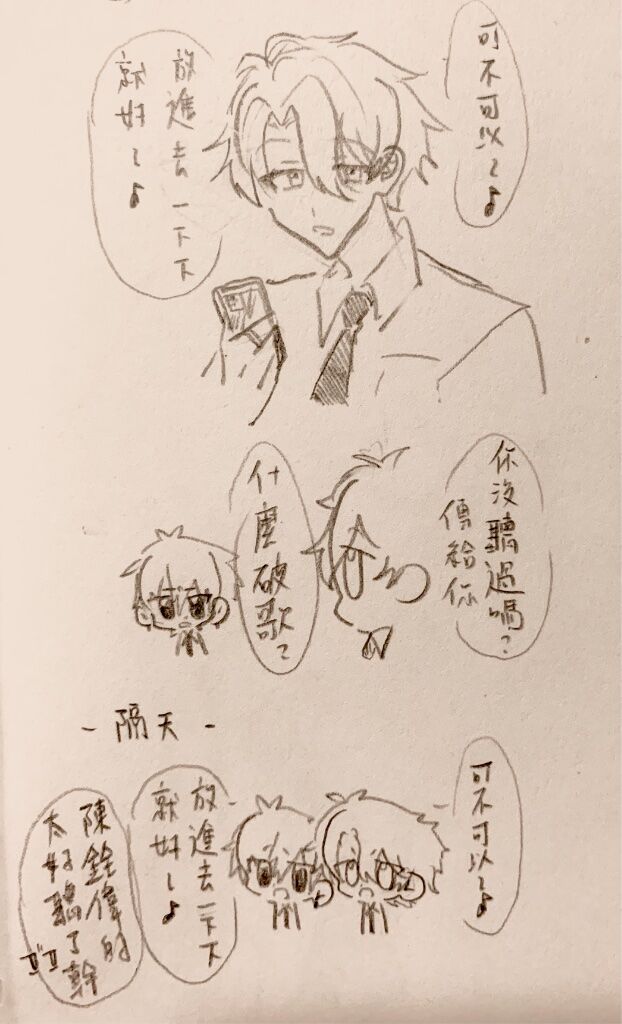 可不可以～♪
放進去一下下
就好～♪
你沒聽過嗎?
傳給你
什麼破歌?
- 隔天 -
可不可以～♪
放進去一下下
就好～♪
陳銓偉的
太好聽了幹